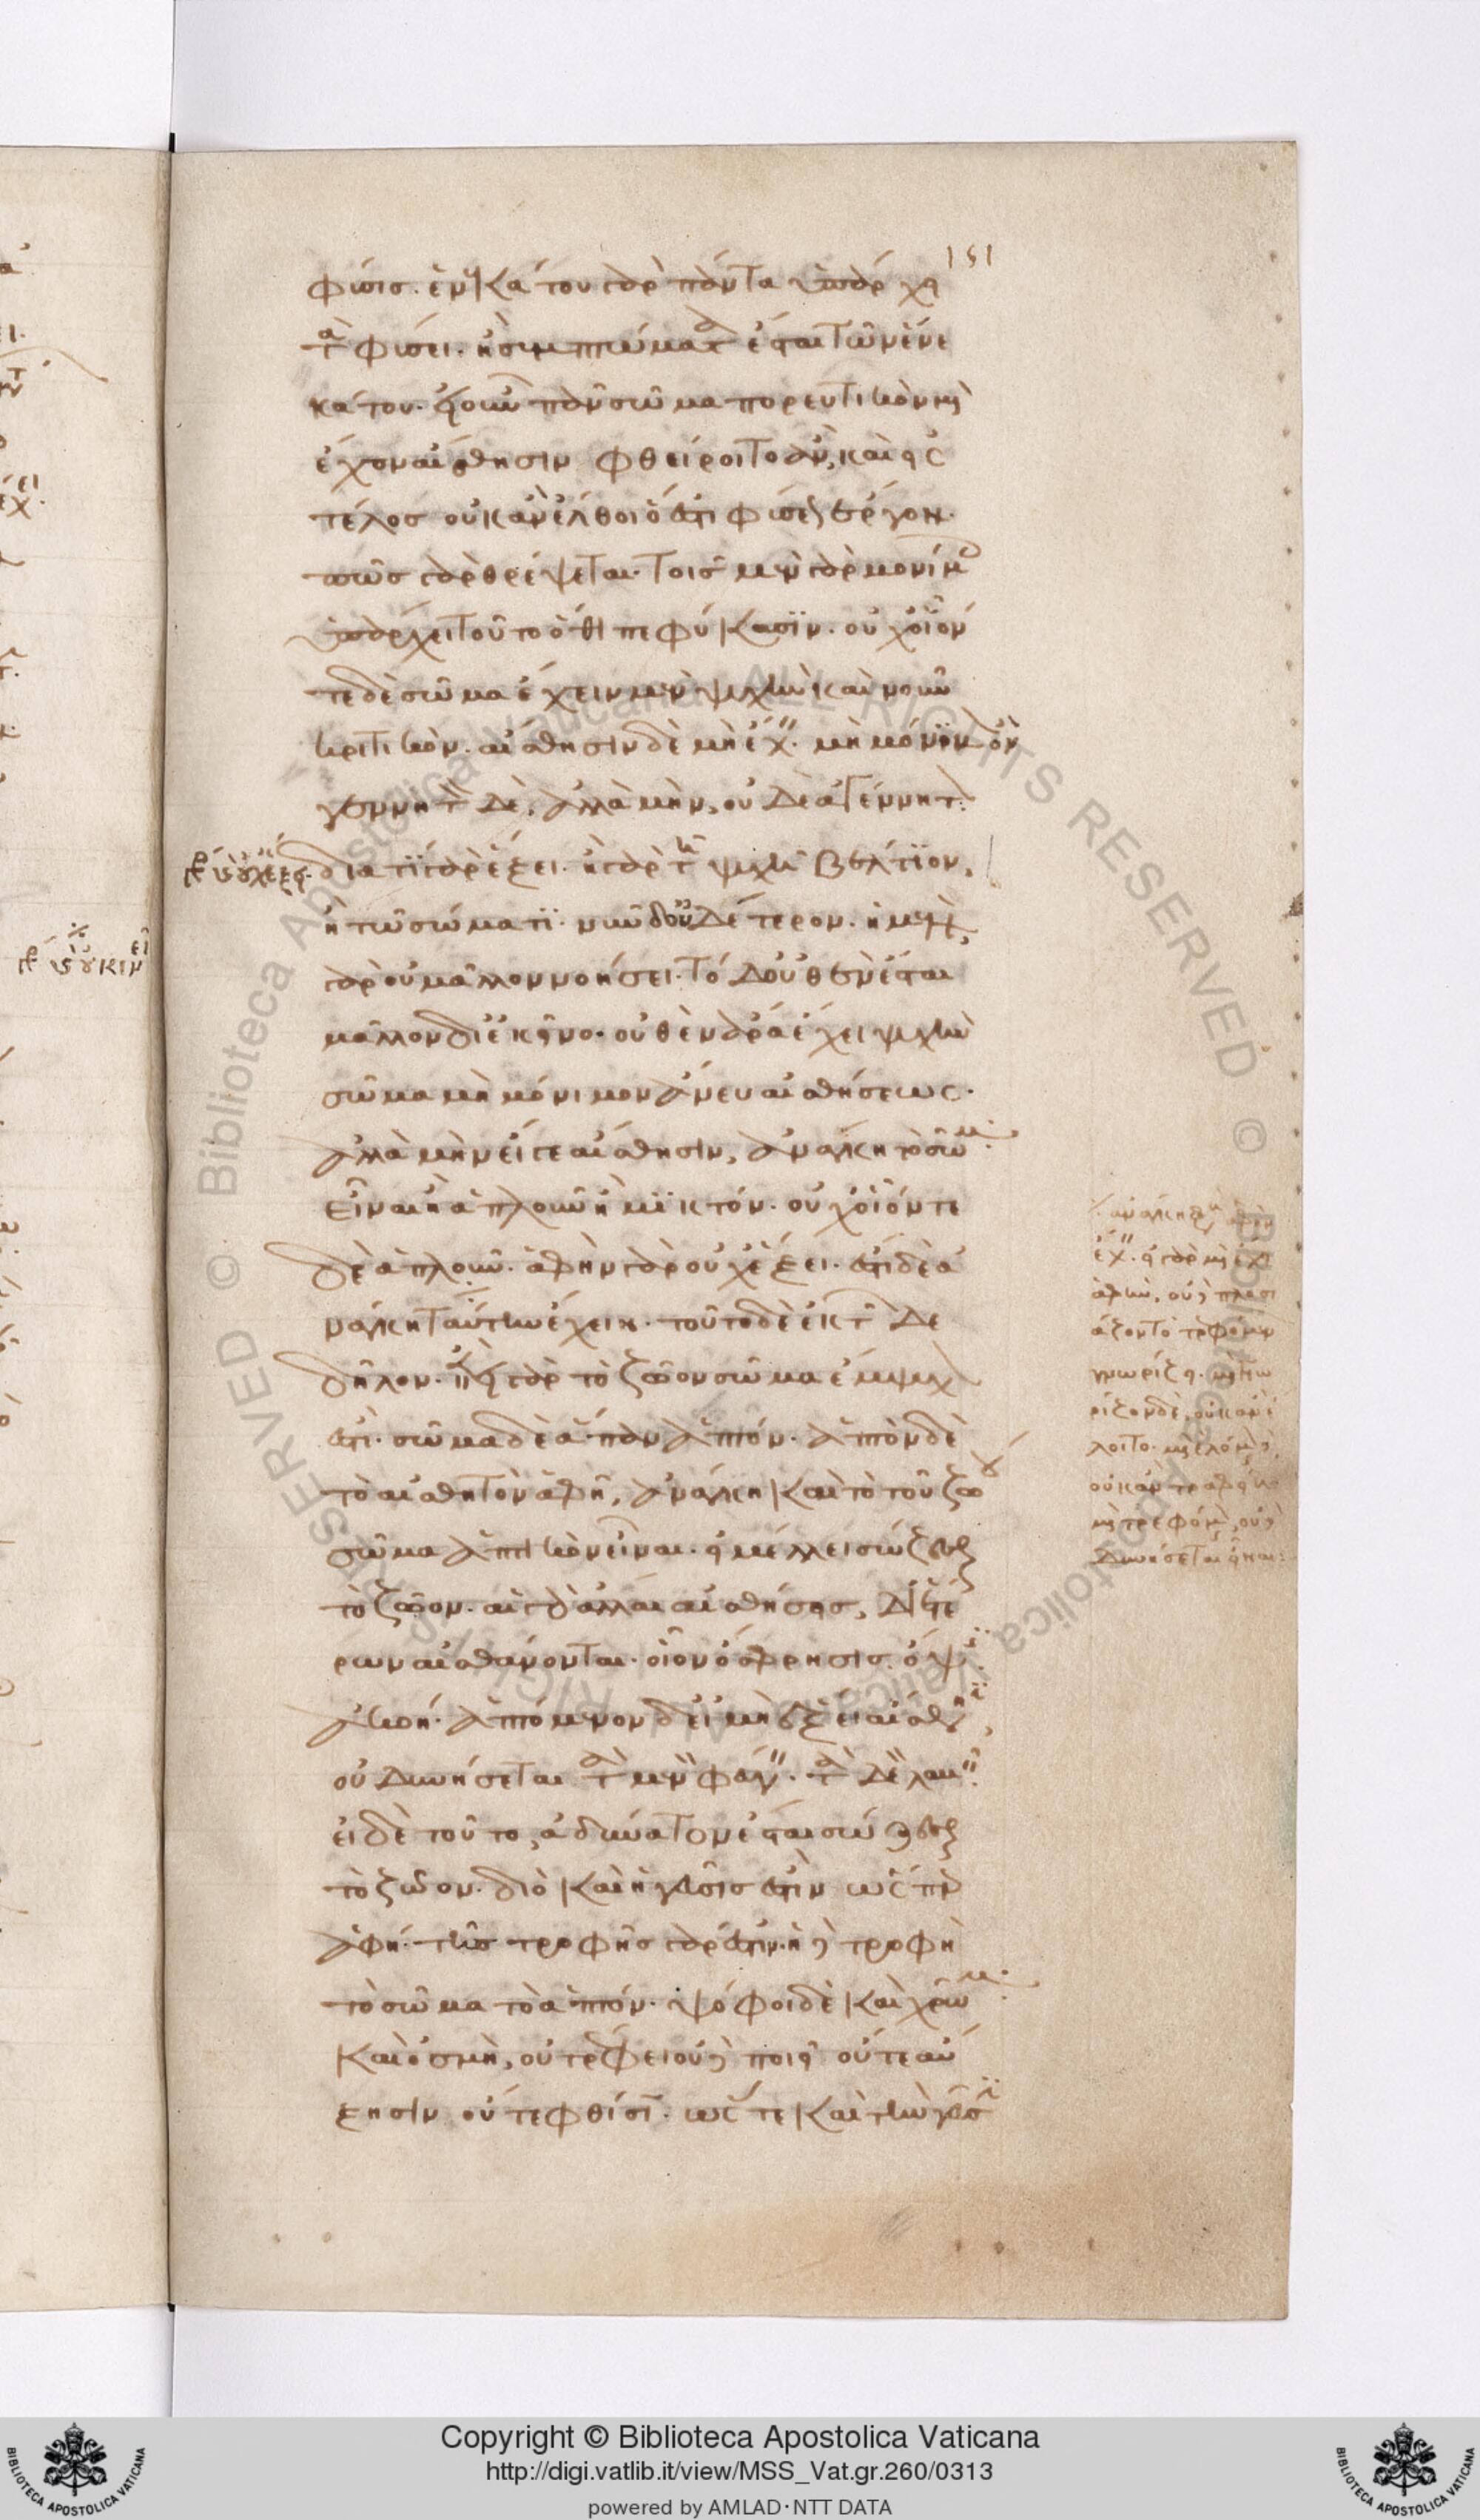 151
φύσις. ἕνεκά του γὰρ πάντα ὑπάρχει
τὰ φύσει. ἢ συμπτώματα ἔσται τῶν ἕνε
κά του. εἰ οὖν πᾶν σῶμα πορευτικὸν μὴ
ἔχον αἴσθησιν φθείροιτο ἄν, καὶ εἰς
τέλος οὐκ ἂν ἔλθοι ὅ ἐστι φύσεως ἔργον.
πῶς γὰρ θρέψεται. τοῖς μὲν γὰρ μονίμοις
ὑπάρχει τοῦτο ὅθεν πεφύκασιν. οὐχ οἷόν
τε δὲ σῶμα ἔχειν μὲν ψυχὴν καὶ νοῦν
κριτικόν. αἴσθησιν δὲ μὴ ἔχειν. μὴ μόνιμον ὂν
γεννητὸν δέ. ἀλλὰ μὴν, οὐδὲ ἀγέννητον.
διὰ τί γὰρ ἕξει. ἢ γὰρ τῇ ψυχῇ βέλτιον,
ἢ τῷ σώματι. νῦν δ' οὐδέτερον. ἡ μὲν
γὰρ οὐ μᾶλλον νοήσει. τὸ δ' οὐθὲν ἔσται
μᾶλλον δι' ἐκεῖνο. οὐθὲν ἄρα ἔχει ψυχὴν
σῶμα μὴ μόνιμον ἄνευ αἰσθήσεως.
ἀλλὰ μὴν εἴ γε αἴσθησιν, ἀνάγκη τὸ σῶμα
εἶναι ἢ ἁπλοῦν ἢ μικτόν. οὐχ οἷόν τε
δὲ ἁπλοῦν. ἁφὴν γὰρ οὐχ ἕξει. ἔστι δὲ ἀ
νάγκη ταύτην ἔχειν. τοῦτο δὲ ἐκ τῶνδε
δῆλον. ἐπεὶ γὰρ τὸ ζῷον σῶμα ἔμψυχον
ἐστι. σῶμα δὲ ἅπαν ἁπτόν. ἁπτὸν δὲ
τὸ αἰσθητὸν ἁφῇ, ἀνάγκη καὶ τὸ τοῦ ζῴου
σῶμα ἁπτικὸν εἶναι. εἰ μέλλει σώζεσθαι
τὸ ζῷον. αἱ γὰρ ἄλλαι αἰσθήσεις, δι' ἑτέ
ρων αἰσθάνονται. οἷον ὄσφρησις. ὄψις.
ἀκοή. ἁπτόμενον δ' εἰ μὴ ἕξει αἴσθησιν,
οὐ δυνήσεται τὰ μὲν φυγεῖν. τὰ δὲ λαβεῖν.
εἰ δὲ τοῦτο, ἀδύνατον ἔσται σώζεσθαι
τὸ ζῷον. διὸ καὶ ἡ γεῦσις ἐστὶν ὥσπερ
ἁφή. τῆς τροφῆς γάρ ἐστιν. ἡ δὲ τροφὴ
τὸ σῶμα τὸ ἁπτόν. ψόφοι δὲ καὶ χρῶμα
καὶ ὀσμὴ, οὐ τρέφει οὐδὲ ποιεῖ οὔτε αὔ
ξησιν οὔτε φθίσιν. ὥστε καὶ τὴν γεῦσιν
ἔχειν. εἰ γὰρ μὴ ἔχει
Copyright © Biblioteca Apostolica Vaticana
http://digi.vatlib.it/view/MSS_Vat.gr.260/0313
powered by AMLAD·NTT DATA
BIBLIOTECA APOSTOLICA VATICANA
BIBLIOTECA APOSTOLICA VATICANA